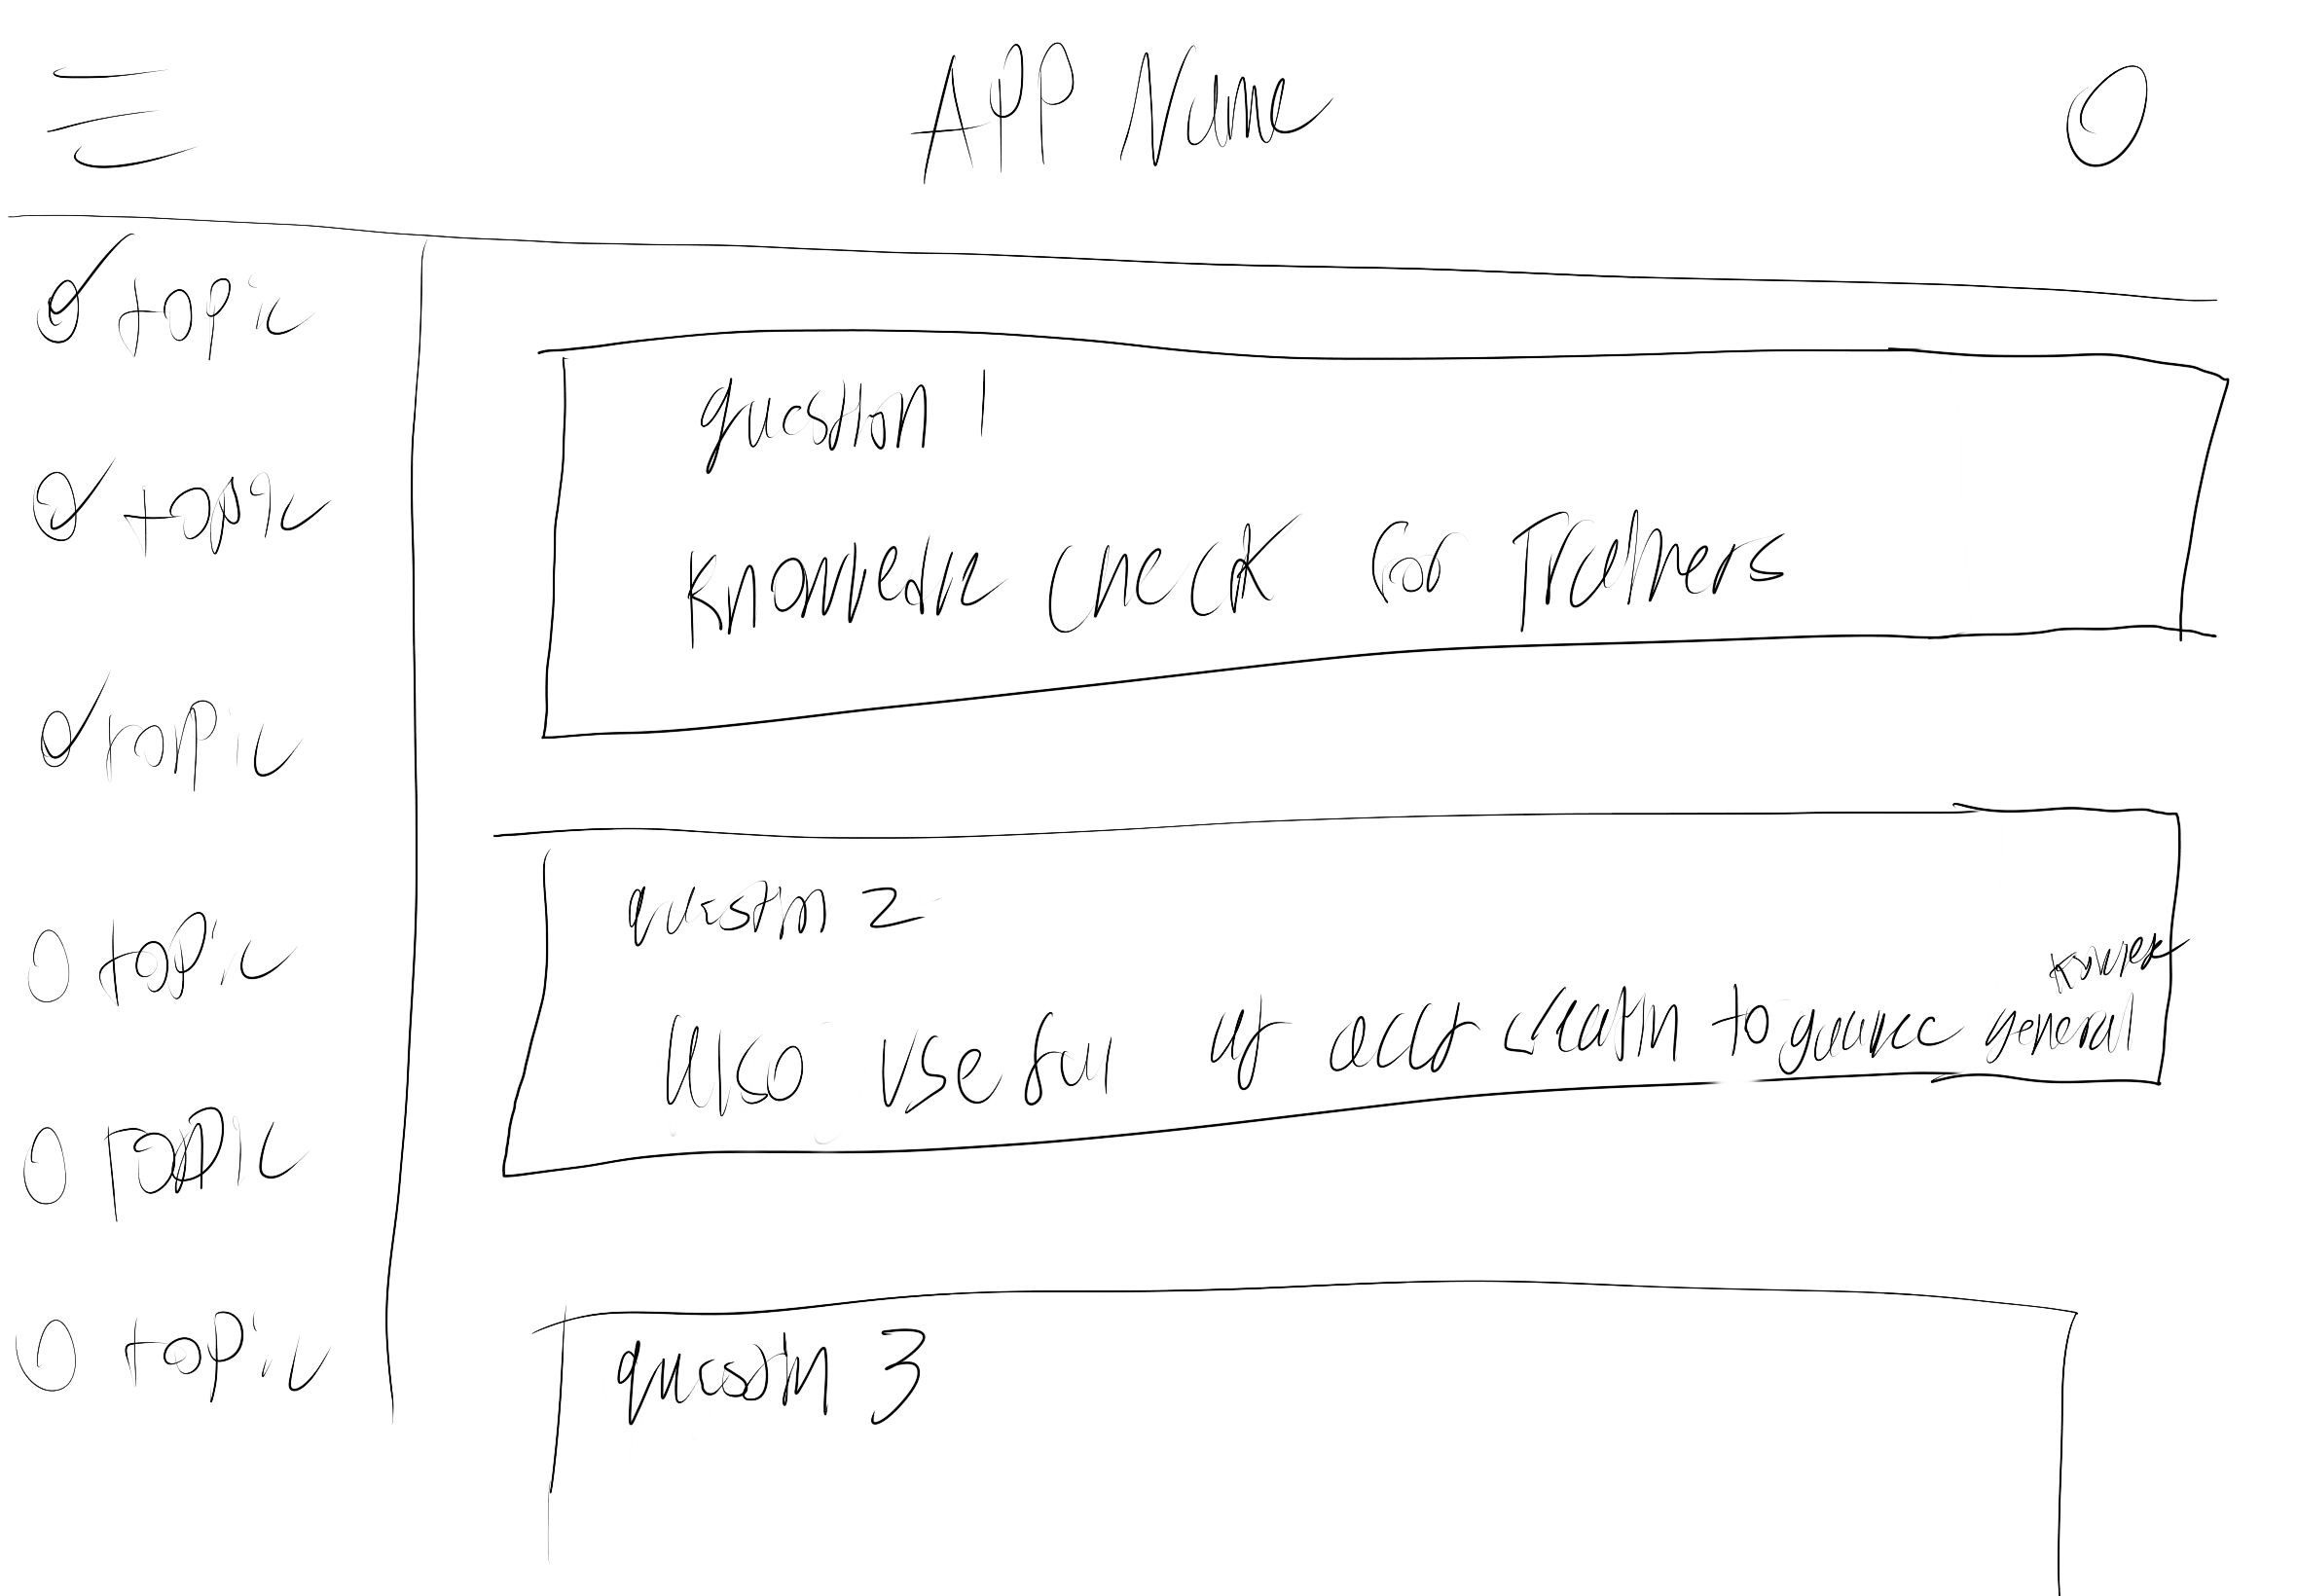 APP Name
topic
topic
topic
topic
topic
topic
question 1
Knowledge check for Trainers
question 2
Also useful at each to gauge general
question 3